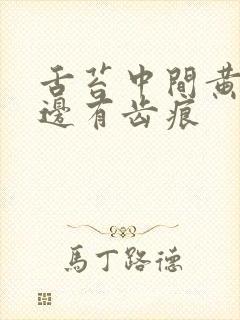 舌苔中間黄
邊有齿痕
馬丁路德